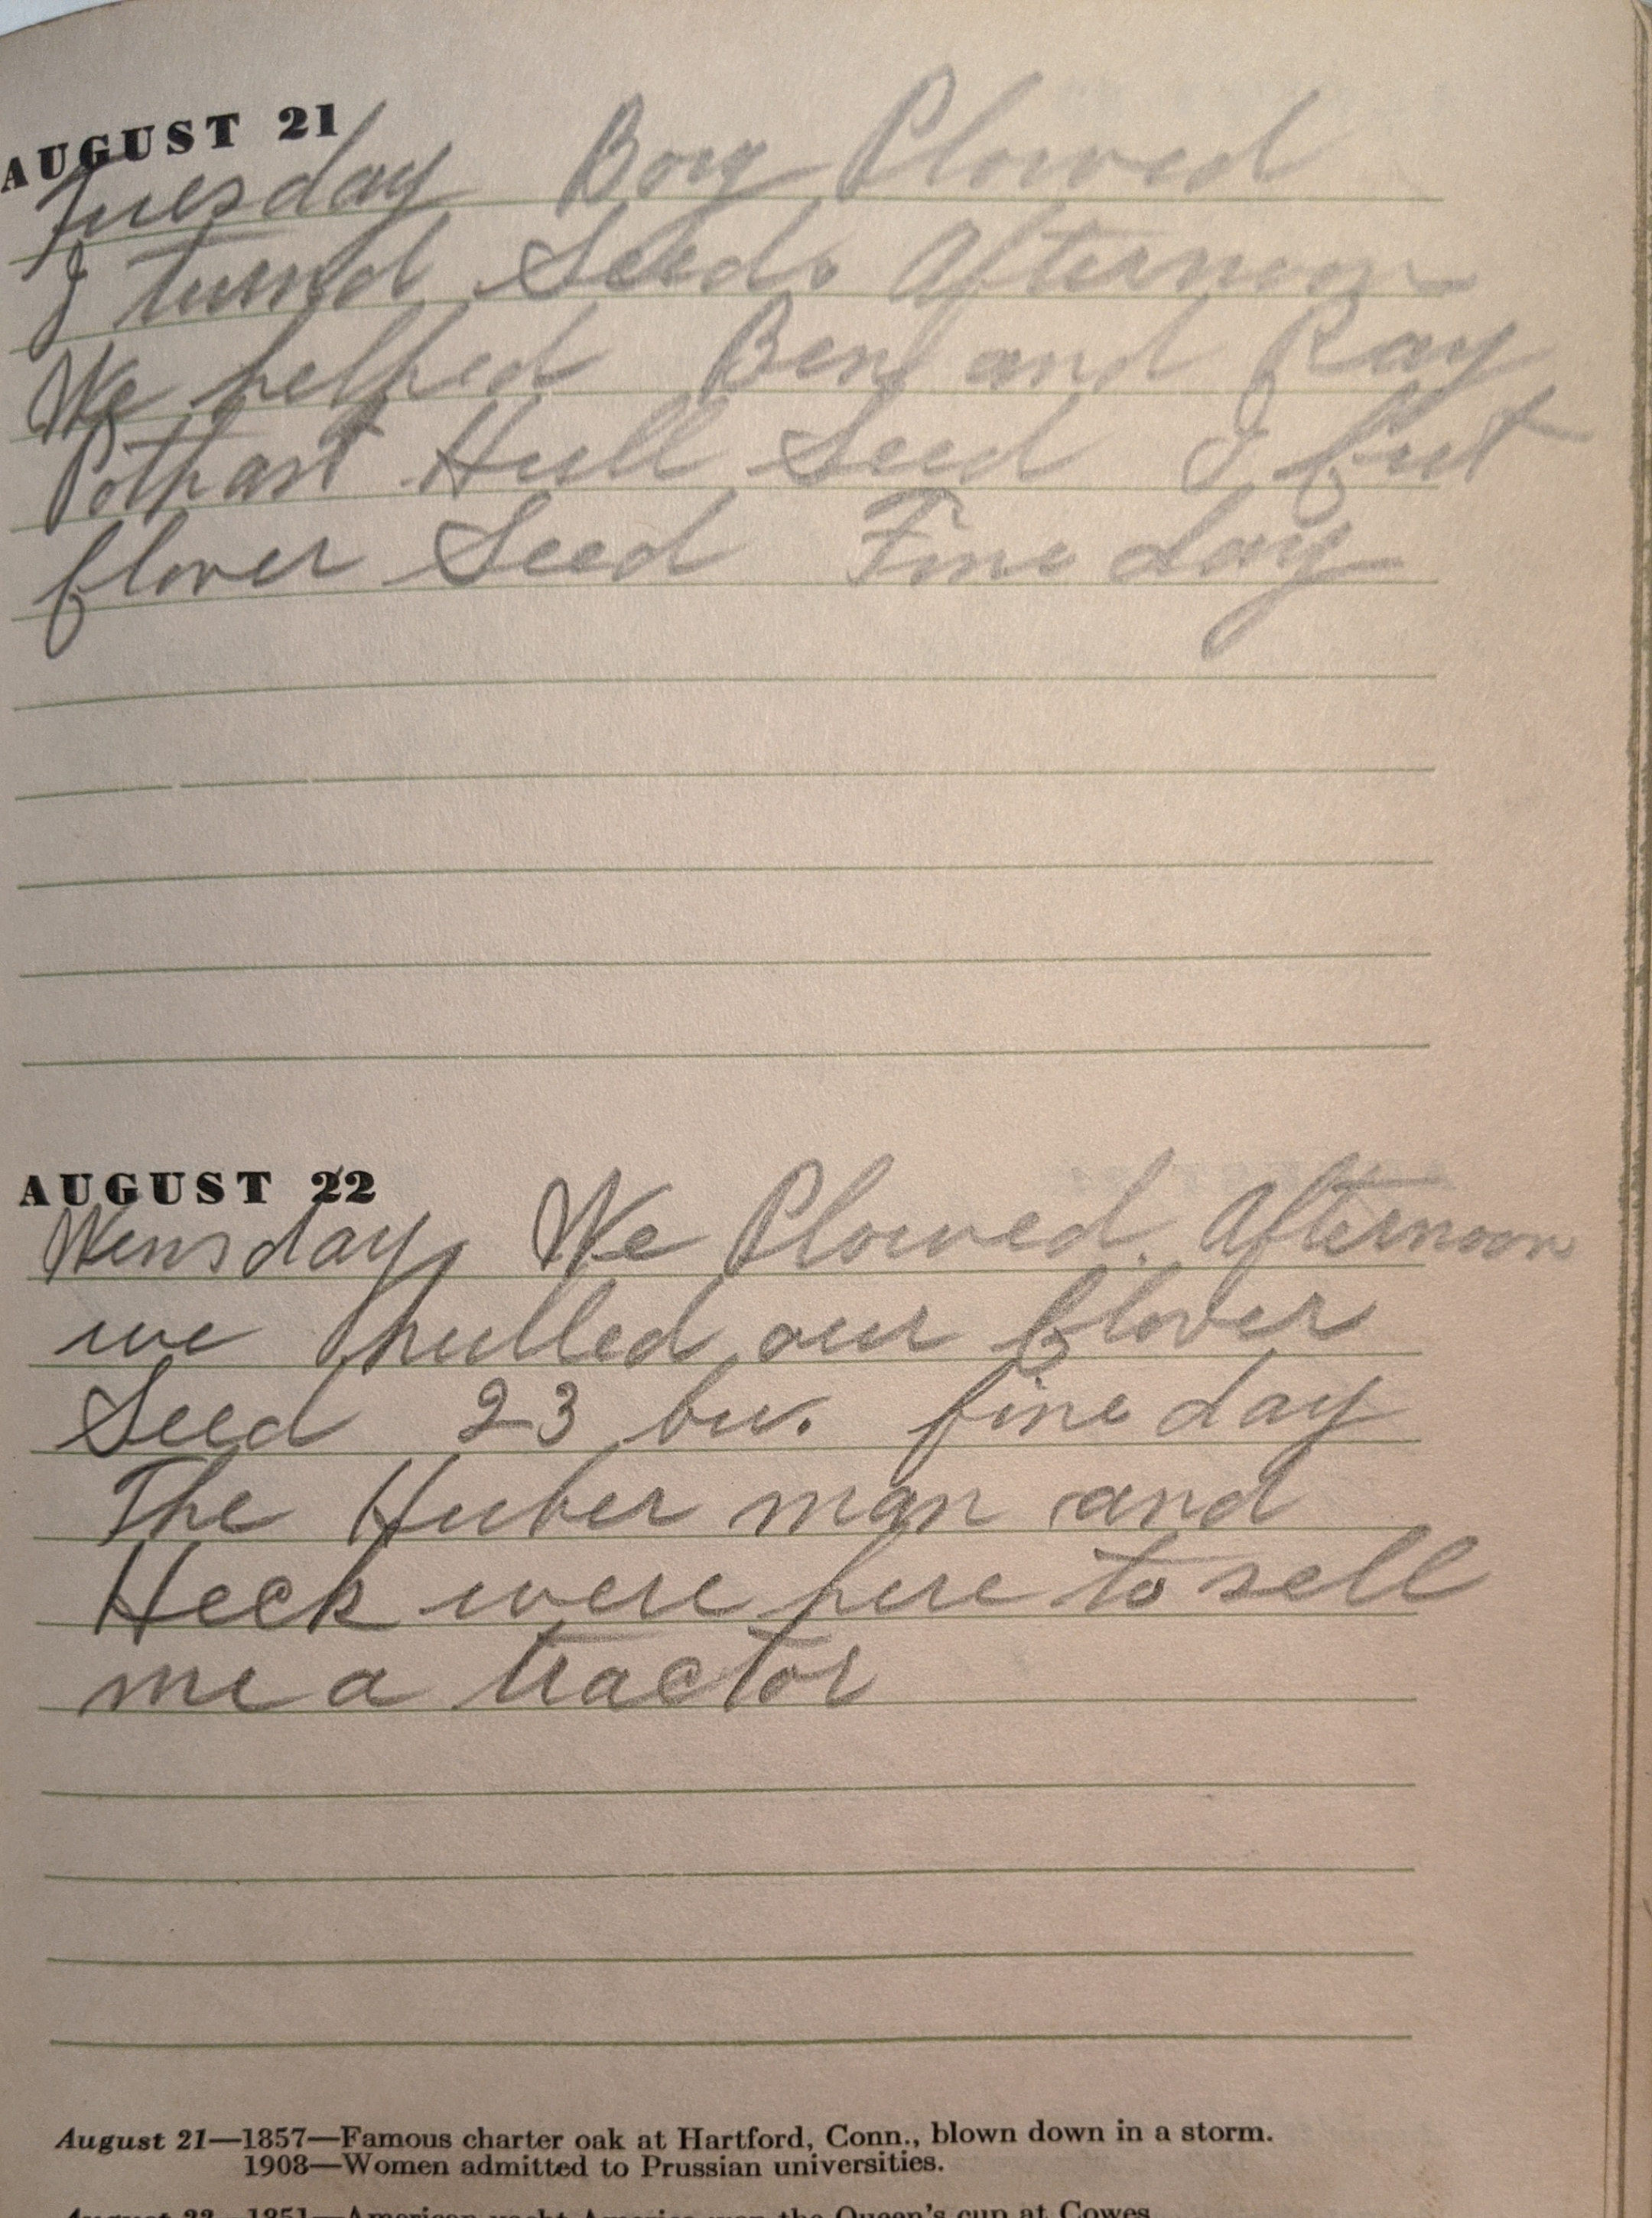 AUGUST 21
Tuesday Boy Plowed
I turnd Seed. Afternoon
We helped Ben and Ray
Pothast Hull Seed I Cut
Clover Seed Fine day
AUGUST 22
Wensday We Plowed. Afternoon
we hulled our Clover
Seed 23 bu. fine day
The Huber man and
Heck were here to sell
me a tractor
August 21—1857—Famous charter oak at Hartford, Conn., blown down in a storm.
1908—Women admitted to Prussian universities.
August 22—1851—American yacht America won the Queen's cup at Cowes.